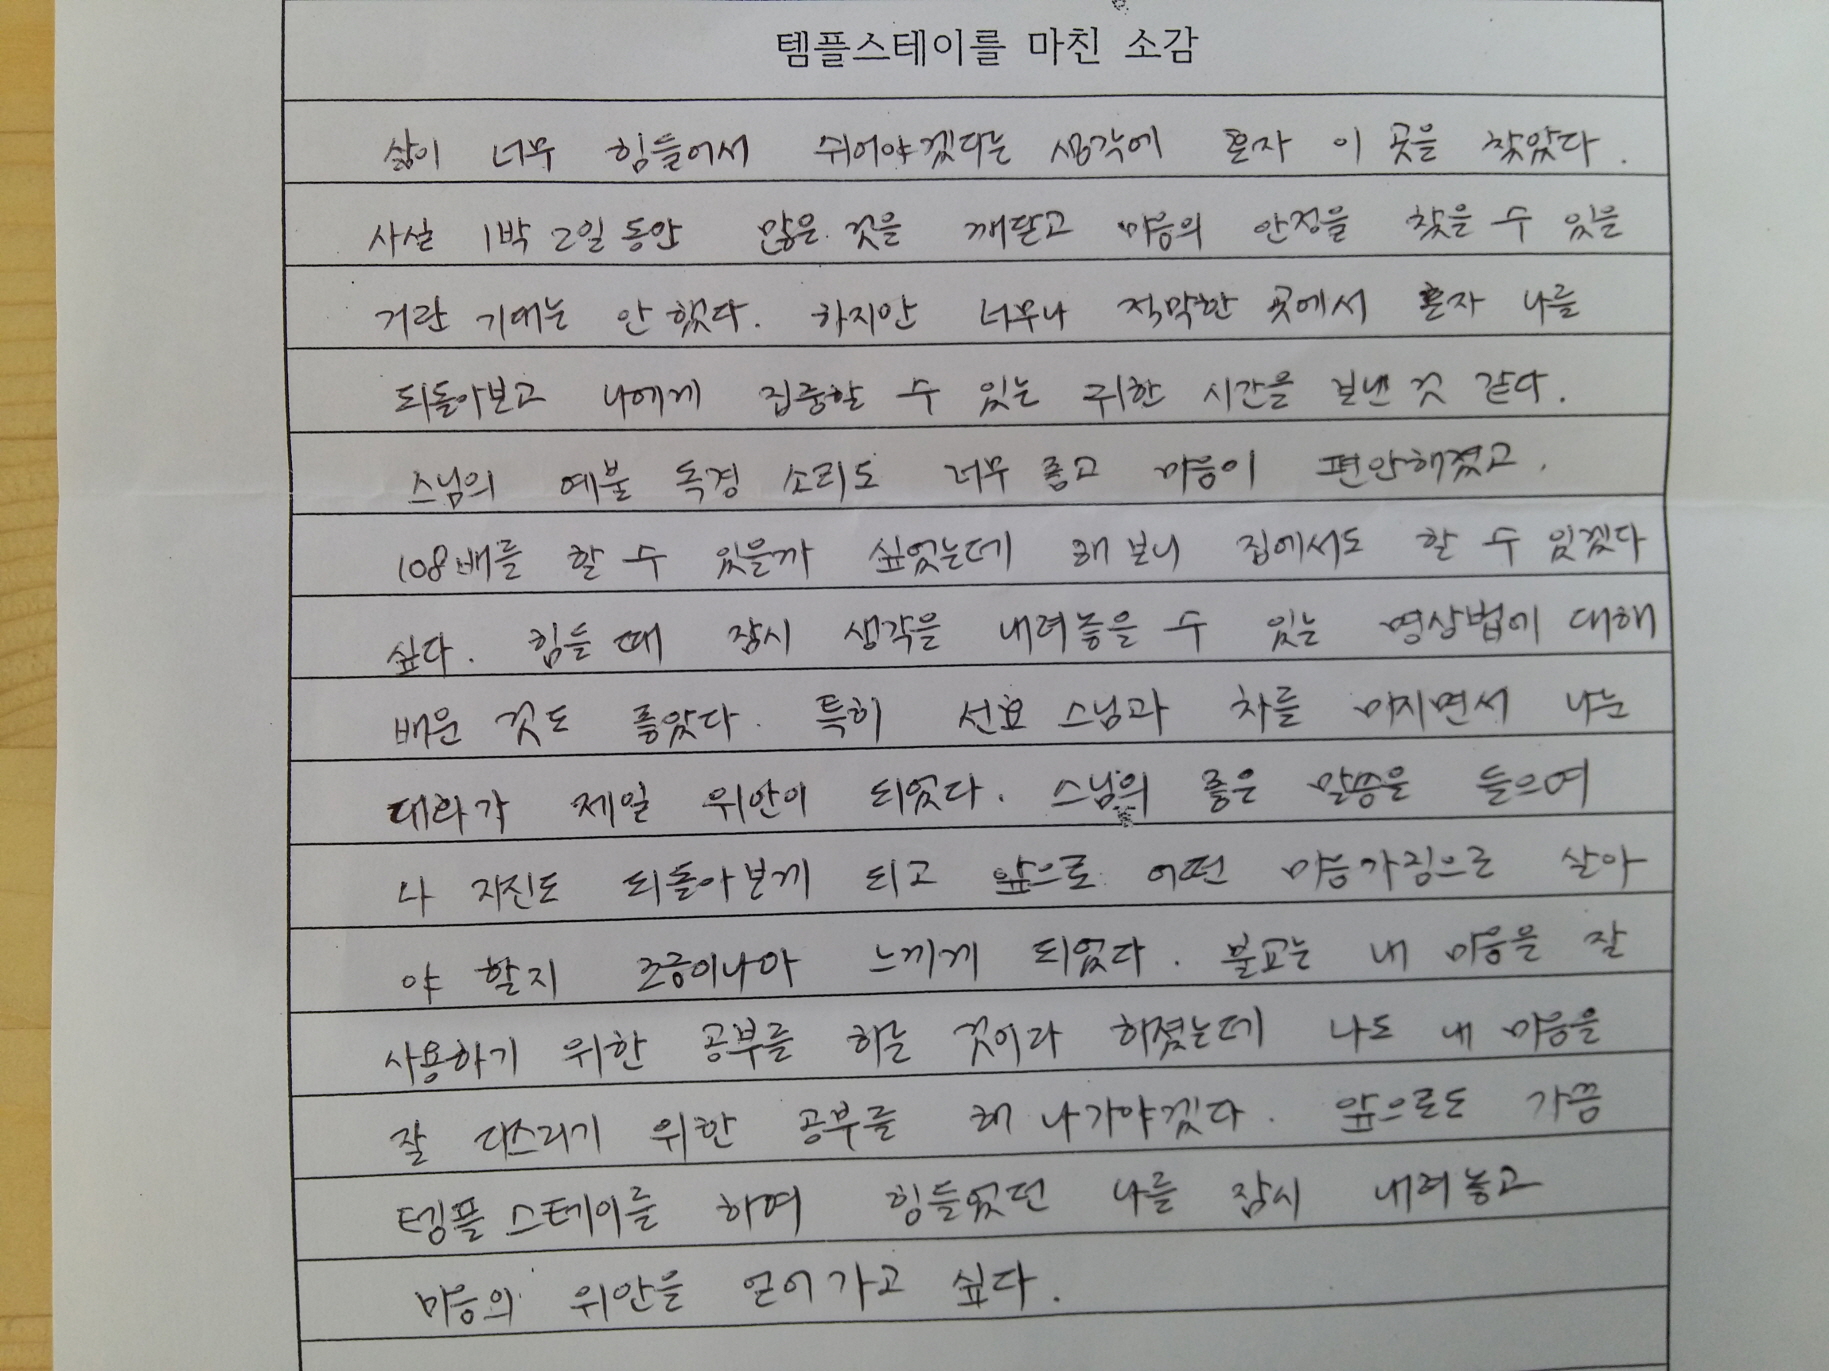 템플스테이를 마친 소감
삶이 너무 힘들어서 쉬어야겠다는 생각에 혼자 이 곳을 찾았다.
사실 1박 2일 동안 많은 것을 깨닫고 마음의 안정을 찾을 수 있을
거란 기대는 안 했다. 하지만 너무나 적막한 곳에서 혼자 나를
되돌아보고 나에게 집중할 수 있는 귀한 시간을 보낸 것 같다.
스님의 예불 독경 소리도 너무 좋고 마음이 편안해졌고.
108배를 할 수 있을까 싶었는데 해 보니 집에서도 할 수 있겠다
싶다. 힘들 때 잠시 생각을 내려놓을 수 있는 명상법에 대해
배운 것도 좋았다. 특히 선효 스님과 차를 마시면서 나눈
대화가 제일 위안이 되었다. 스님의 좋은 말씀을 들으며
나 자신도 되돌아보게 되고 앞으로 어떤 마음가짐으로 살아
야 할지 조금이나마 느끼게 되었다. 불교는 내 마음을 잘
사용하기 위한 공부를 하는 것이라 하셨는데 나도 내 마음을
잘 다스리기 위한 공부를 해 나가야겠다. 앞으로도 가끔
템플 스테이를 하며 힘들었던 나를 잠시 내려놓고
마음의 위안을 얻어 가고 싶다.